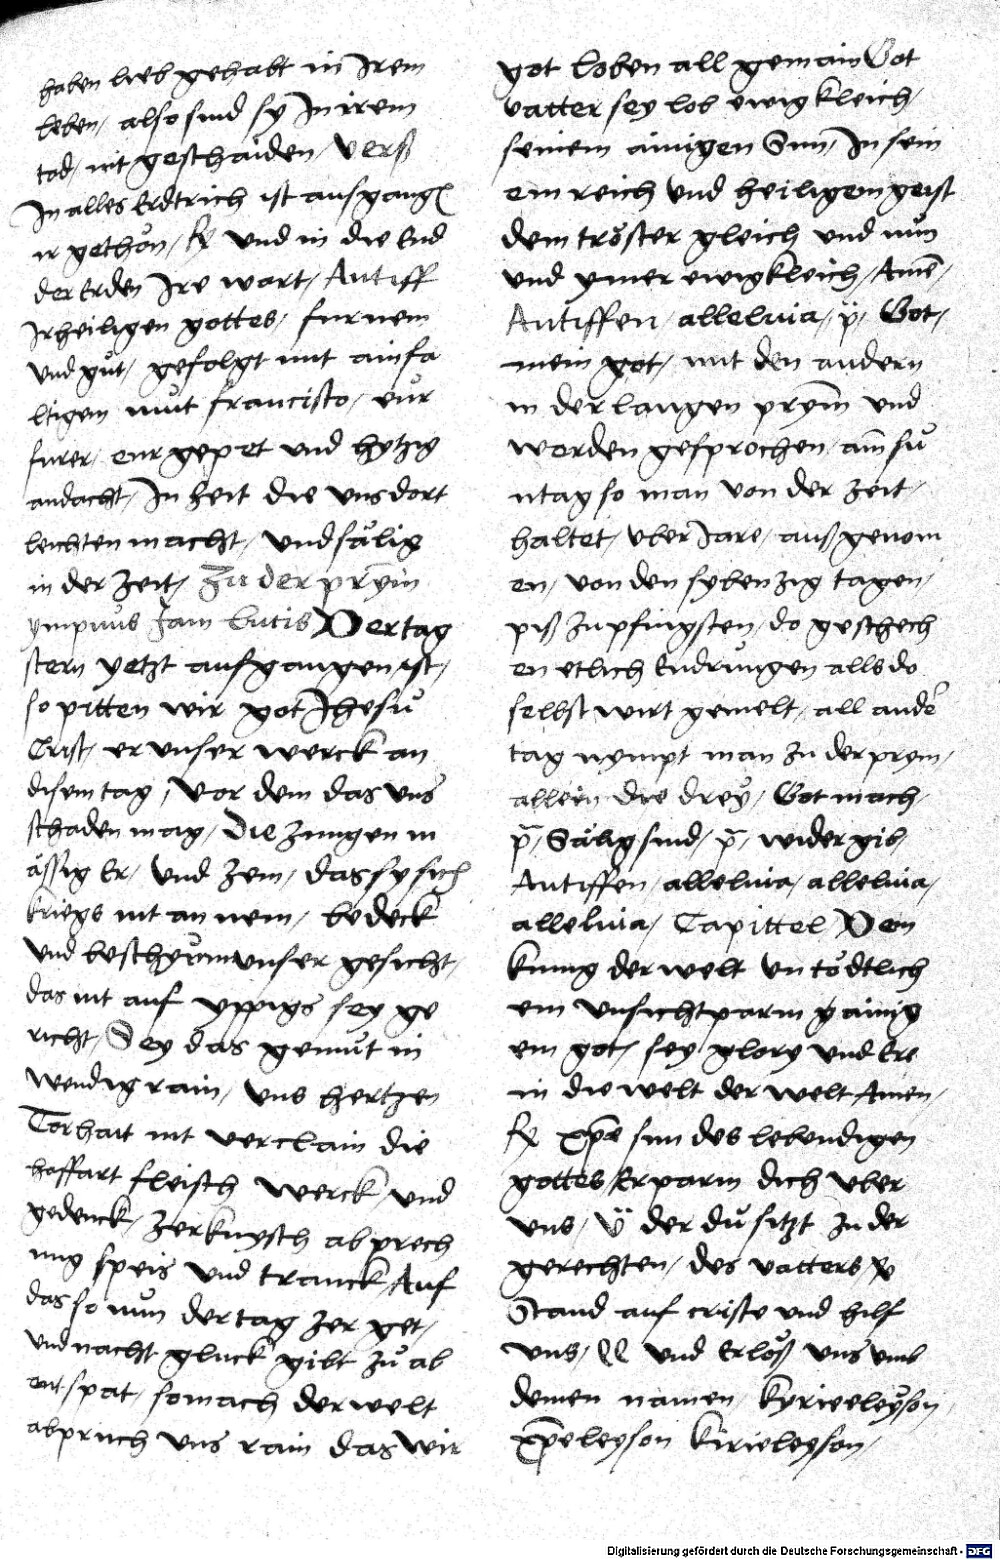 haben lieb gehabt in Irem
leben, also sind sy In irem
tod, nit geschaiden, Verß
In alles Erdtrich ist ausgangē
ir gethön, ꝶ und in die End
der Erden Ire wort, Antiff
Ir heiligen gottes, furnem
und gůt, gefolgt mit ainfa
ltigem mut francisco, eur
furer, eur gepet und hytzig
andacht, In zeit die uns dort
leichten macht, und sälig
in der zeit, Zu der prym
ympnus Jam lucis Der tag
stern yetzt aufgangen ist,
so pitten wir got Jhesu
Crist, er unser werck an
disem tag, vor dem das uns
schaden mag, Die zungen m
ässig Er, und zem, das sy sich
kriegs nit an nem, bedeck
und beschyrm unser gesicht,
das nit auf yppigs sey ge
richt, Sey das gemůt in
wendig rain, uns hertzen
Torhait nit verclain die
hoffart fleisch werck, und
gedenck, zerknysch abprech
ung speis und tranck, Auf
das so nun der tag zer get,
und nacht gluck gibt zů ab
ent spat, so mach der welt
abpruch uns rain das wir
got loben all gemain Got
vatter sey lob ewigkleich,
seinem ainigen Sun, In sein
em reich und heiligem geist
dem tröster gleich und nun
und ymer ewigkleich, Amē,
Antiffen, alleluia, p̈, Got,
mein got, mit den andern
in der langen prym und
werden gesprochen, am sů
ntag so man von der zeit,
haltet, uber Jare, auß genom
en, von den sybenzig tagen,
piß zu pfingsten, do geschech
en etlich Endrungen als do
selbst wirt gemelt, all ander
tag nympt man zu der prym,
allein die drey, Got mach,
p̄, Sälig sind, p̄, wider gib,
Antiffen, alleluia, alleluia,
alleluia, Capittel, Dem
kunig der welt untödtlich
em unsichtparm ainig
em got, sey glory und Ere
in die welt der welt Amen,
ꝶ xp̄e sun des lebendigen
gottes Erparm dich uber
uns, v̈ der du sitzt zu der
gerechten, des vatters, ꝶ
Stand auf criste und hilf
uns, und Erlöß uns umb
deinen namen, kyrieeleyson,
xp̄eleyson kirieleyson,
Digitalisierung gefördert durch die Deutsche Forschungsgemeinschaft - DFG